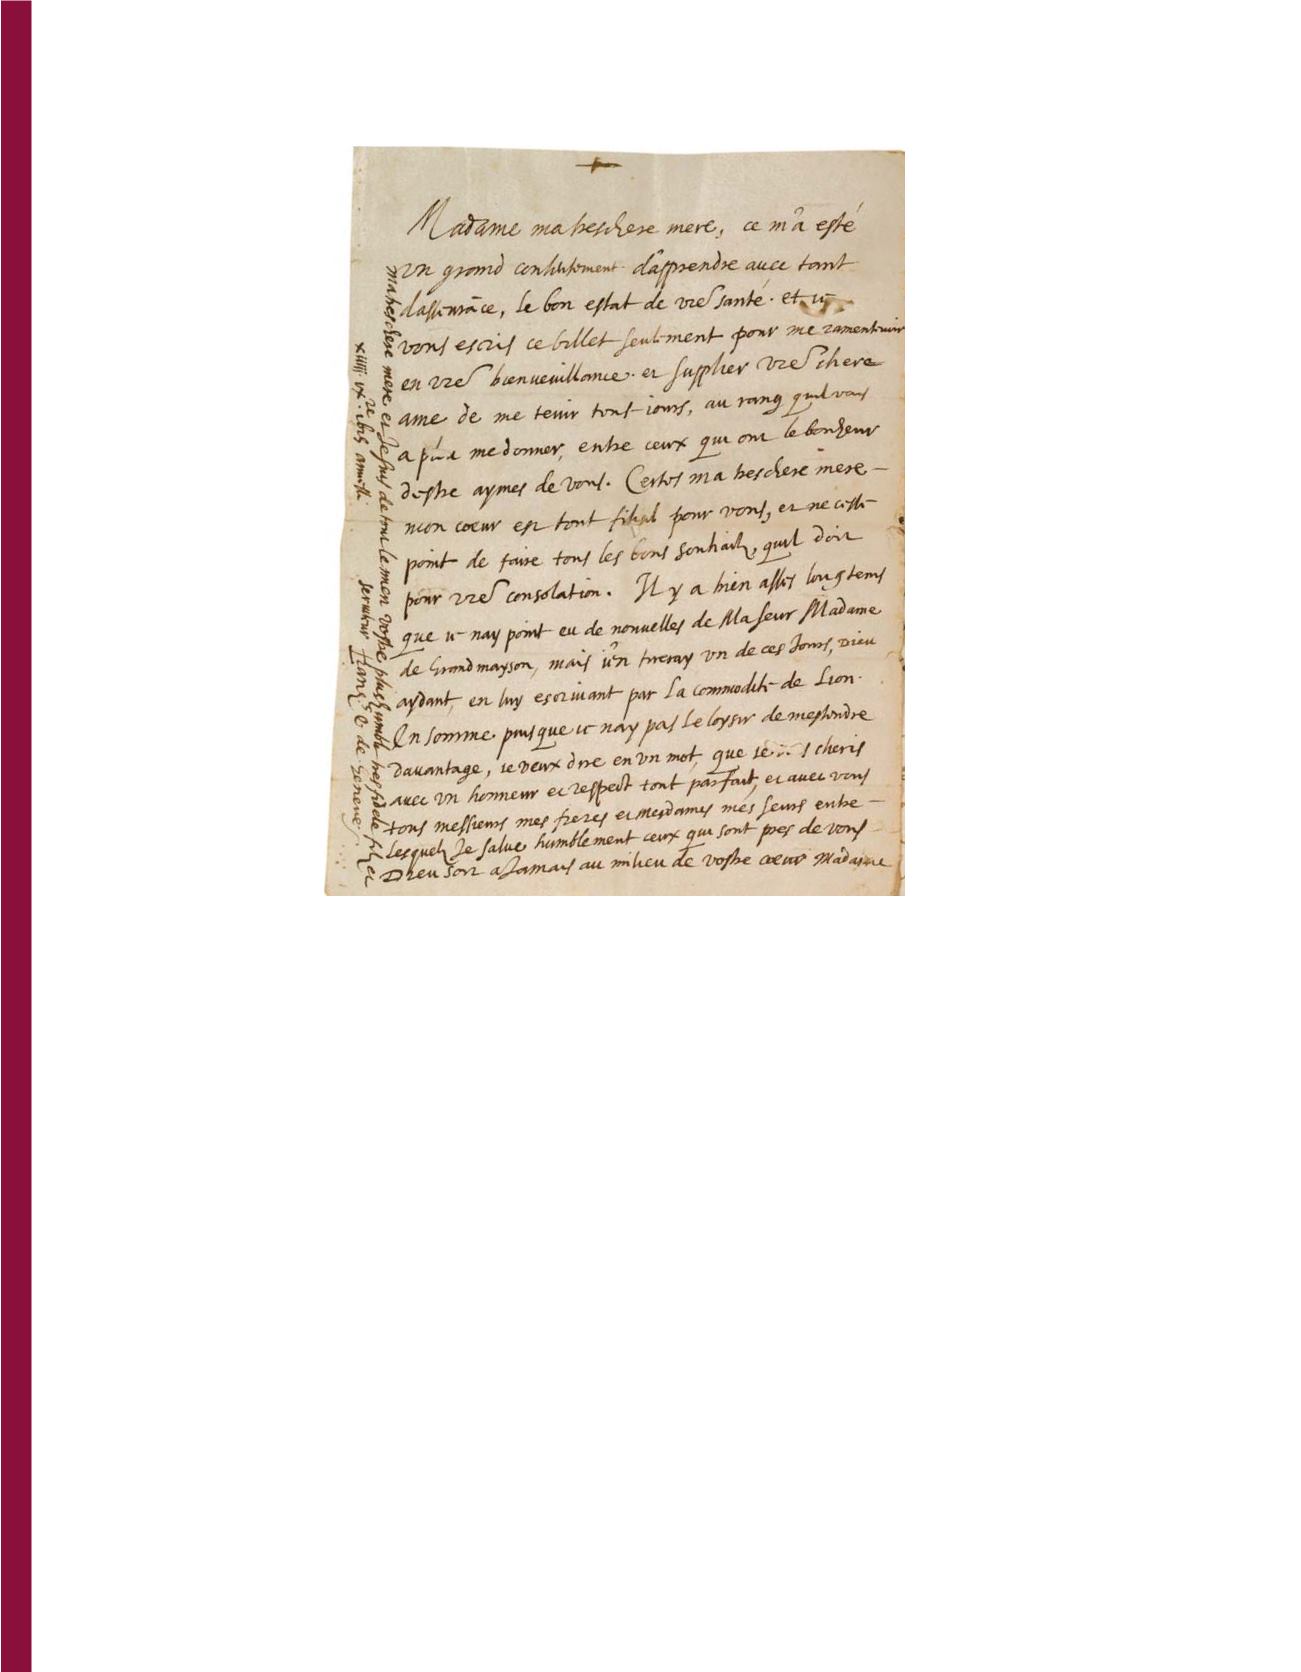 Madame ma treschere mere, ce m'a esté
un grand contentement d'apprendre avec tant
dasseurāce, le bon estat de vre santé. et ie
vous escris ce billet seulement pour me ramentevoir
en vre bienveuillance. et supplier vre chere
ame de me tenir tous-iours, au rang quil vous
a pleu me donner, entre ceux qui ont le bonheur
destre aymes de vous. Certes ma treschere mere
mon coeur est tout filial pour vous, et ne cesse
point de faire tous les bons souhaitz, quil doit
pour vre consolation. Il y a bien asses longtems
que ie nay point eu de nouvelles de Ma seur Madame
de Grandmayson, mais i'en tireray un de ces Jours, Dieu
aydant, en luy escrivant par la commodité de Lion.
En somme puisque ie nay pas le loysir de mestendre
davantage, ie veux dire en un mot, que ie vous cheris
avec un honneur et respect tout parfait, et avec vous
tous messieurs mes freres et mesdames mes seurs entre
lesquelz Je salue humblement ceux qui sont pres de vous
Dieu soit a Jamais au milieu de vostre coeur Madame
ma treschere mere et Je suis de tout le mien vostre plus humble tresfidele filz et
serviteur Franc⁠s E. de Geneve
xiiii ix re 1618 annessi